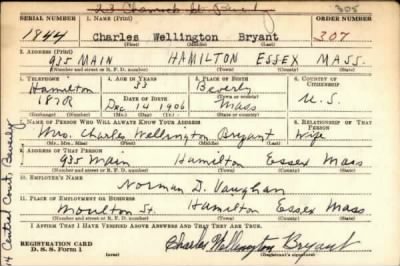 305
SERIAL NUMBER 1. NAME (Print) ORDER NUMBER
1844 Charles Wellington Bryant 307
(First) (Middle) (Last)
2. ADDRESS (Print)
935 MAIN HAMILTON ESSEX MASS.
(Number and street or R. F. D. number) (Town) (County) (State)
3. TELEPHONE 4. AGE IN YEARS 5. PLACE OF BIRTH 6. COUNTRY OF CITIZENSHIP
Hamilton 33 Beverly
DATE OF BIRTH
187R Dec 14 1906 Mass U.S.
(Exchange) (Number) (Mo.) (Day) (Yr.) (State or country)
7. NAME OF PERSON WHO WILL ALWAYS KNOW YOUR ADDRESS 8. RELATIONSHIP OF THAT PERSON
Mrs. Charles Wellington Bryant Wife
(Mr., Mrs., Miss) (First) (Middle) (Last)
9. ADDRESS OF THAT PERSON
935 Main Hamilton Essex Mass
(Number and street or R. F. D. number) (Town) (County) (State)
10. EMPLOYER'S NAME
Norman D. Vaughan
11. PLACE OF EMPLOYMENT OR BUSINESS
Moulton St. Hamilton Essex Mass
(Number and street or R. F. D. number) (Town) (County) (State)
I AFFIRM THAT I HAVE VERIFIED ABOVE ANSWERS AND THAT THEY ARE TRUE.
REGISTRATION CARD
D. S. S. Form 1
Charles Wellington Bryant
(Registrant's signature)
14 Central Court, Beverly